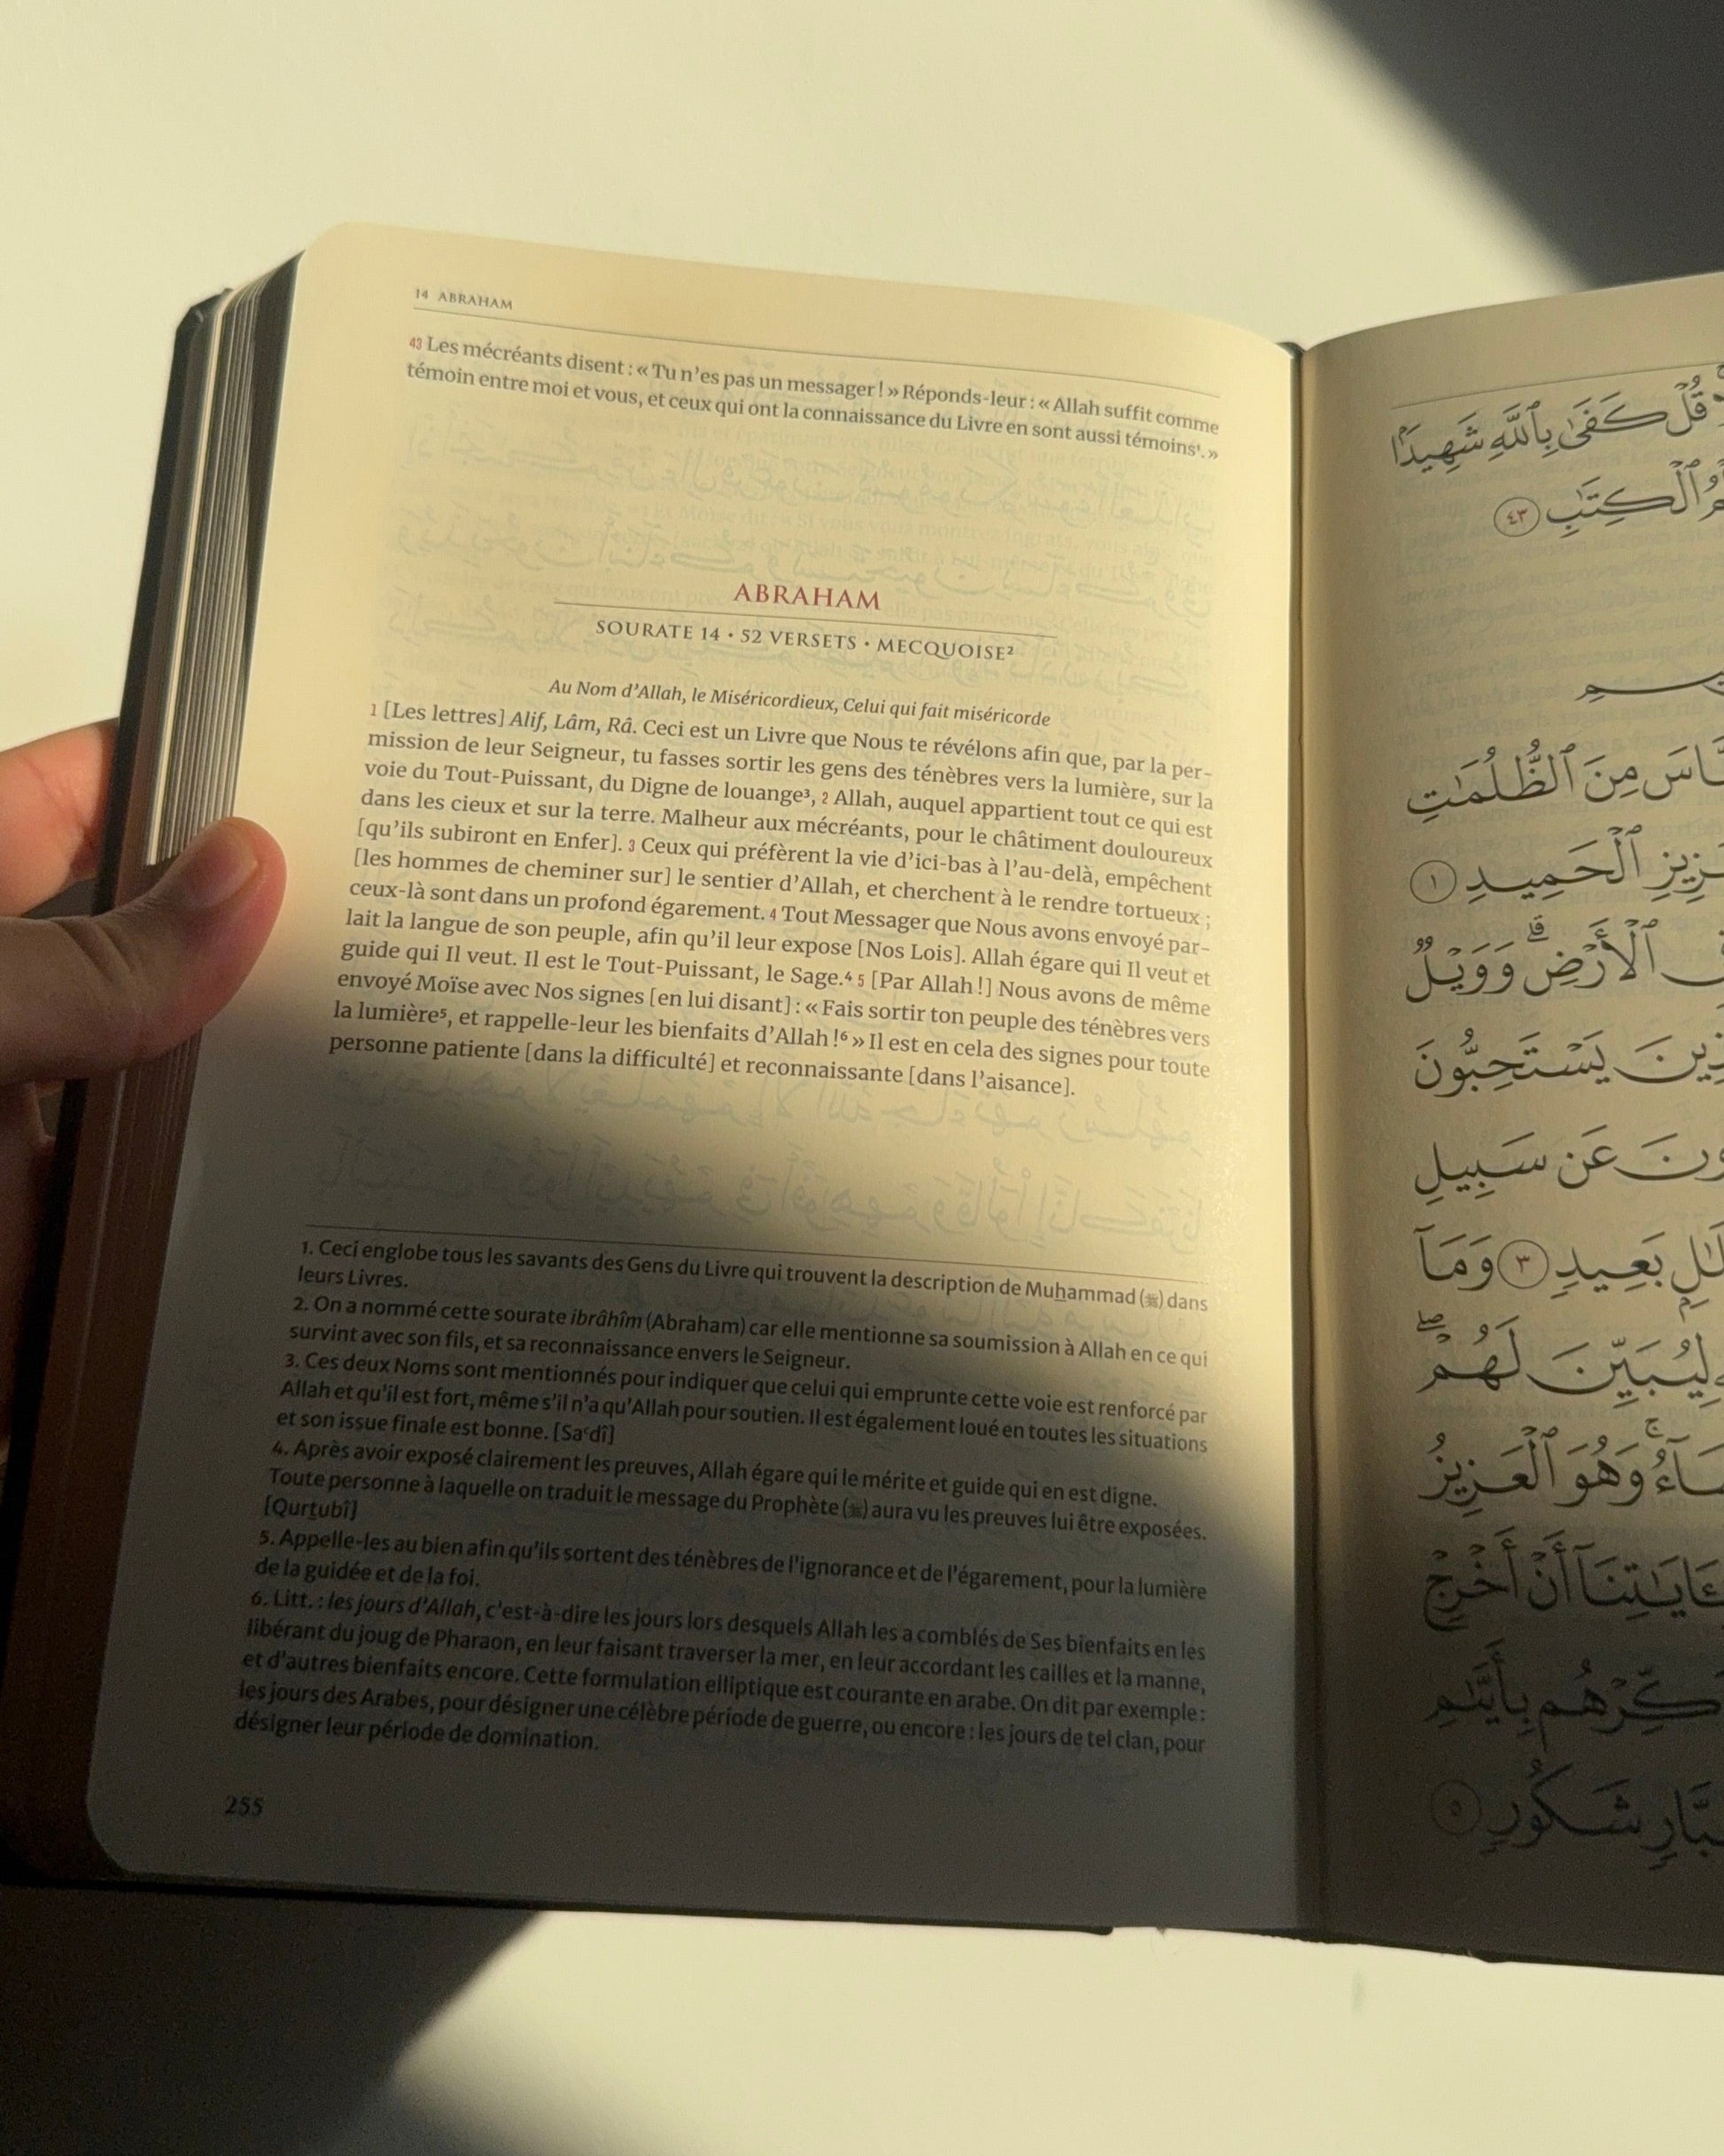 14 ABRAHAM
43 Les mécréants disent : « Tu n'es pas un messager ! » Réponds-leur : « Allah suffit comme
témoin entre moi et vous, et ceux qui ont la connaissance du Livre en sont aussi témoins¹. »
ABRAHAM
SOURATE 14 • 52 VERSETS • MECQUOISE²
Au Nom d'Allah, le Miséricordieux, Celui qui fait miséricorde
1 [Les lettres] Alif, Lâm, Râ. Ceci est un Livre que Nous te révélons afin que, par la per-
mission de leur Seigneur, tu fasses sortir les gens des ténèbres vers la lumière, sur la
voie du Tout-Puissant, du Digne de louange³, 2 Allah, auquel appartient tout ce qui est
dans les cieux et sur la terre. Malheur aux mécréants, pour le châtiment douloureux
[qu'ils subiront en Enfer]. 3 Ceux qui préfèrent la vie d'ici-bas à l'au-delà, empêchent
[les hommes de cheminer sur] le sentier d'Allah, et cherchent à le rendre tortueux ;
ceux-là sont dans un profond égarement. 4 Tout Messager que Nous avons envoyé par-
lait la langue de son peuple, afin qu'il leur expose [Nos Lois]. Allah égare qui Il veut et
guide qui Il veut. Il est le Tout-Puissant, le Sage.⁴ 5 [Par Allah !] Nous avons de même
envoyé Moïse avec Nos signes [en lui disant] : « Fais sortir ton peuple des ténèbres vers
la lumière⁵, et rappelle-leur les bienfaits d'Allah !⁶ » Il est en cela des signes pour toute
personne patiente [dans la difficulté] et reconnaissante [dans l'aisance].
1. Ceci englobe tous les savants des Gens du Livre qui trouvent la description de Muhammad (ﷺ) dans
leurs Livres.
2. On a nommé cette sourate ibrâhîm (Abraham) car elle mentionne sa soumission à Allah en ce qui
survint avec son fils, et sa reconnaissance envers le Seigneur.
3. Ces deux Noms sont mentionnés pour indiquer que celui qui emprunte cette voie est renforcé par
Allah et qu'il est fort, même s'il n'a qu'Allah pour soutien. Il est également loué en toutes les situations
et son issue finale est bonne. [Saʿdî]
4. Après avoir exposé clairement les preuves, Allah égare qui le mérite et guide qui en est digne.
Toute personne à laquelle on traduit le message du Prophète (ﷺ) aura vu les preuves lui être exposées.
[Qurtubî]
5. Appelle-les au bien afin qu'ils sortent des ténèbres de l'ignorance et de l'égarement, pour la lumière
de la guidée et de la foi.
6. Litt. : les jours d'Allah, c'est-à-dire les jours lors desquels Allah les a comblés de Ses bienfaits en les
libérant du joug de Pharaon, en leur faisant traverser la mer, en leur accordant les cailles et la manne,
et d'autres bienfaits encore. Cette formulation elliptique est courante en arabe. On dit par exemple :
les jours des Arabes, pour désigner une célèbre période de guerre, ou encore : les jours de tel clan, pour
désigner leur période de domination.
255
قُلْ كَفَىٰ بِٱللَّهِ شَهِيدًۢا
ٱلْكِتَٰبِ ٤٣
مِنَ ٱلظُّلُمَٰتِ
ٱلْحَمِيدِ ١
ٱلْأَرْضِ ۗ وَوَيْلٌ
يَسْتَحِبُّونَ
عَن سَبِيلِ
بَعِيدٍ ٣ وَمَآ
لِيُبَيِّنَ لَهُمْ ۖ
وَهُوَ ٱلْعَزِيزُ
أَنْ أَخْرِجْ
بِأَيَّىٰمِ
شَكُورٍ ٥